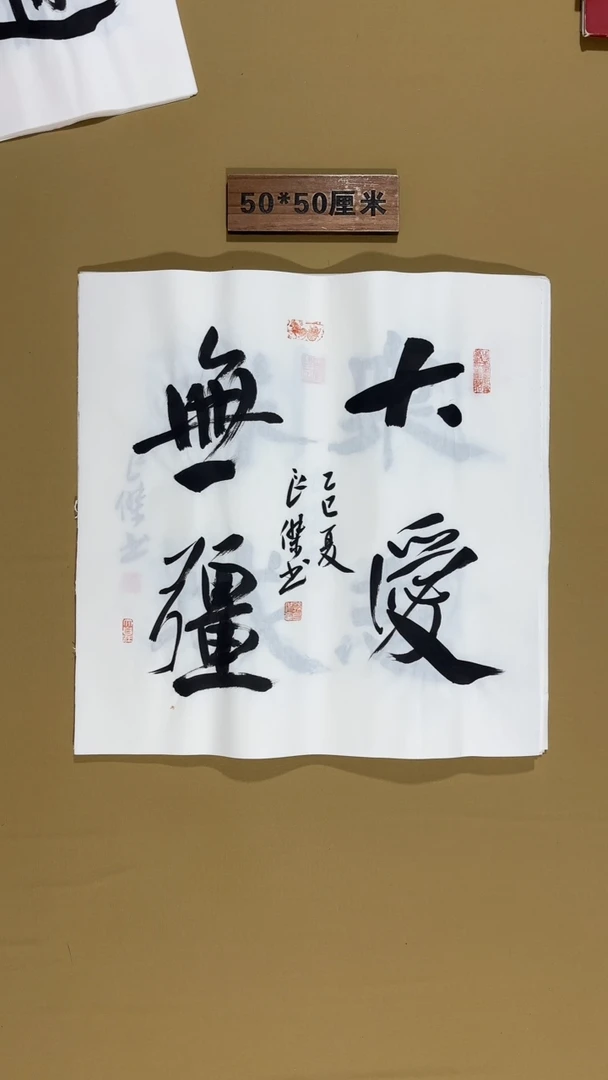 50*50厘米
大愛
無疆
乙巳夏
良傑书